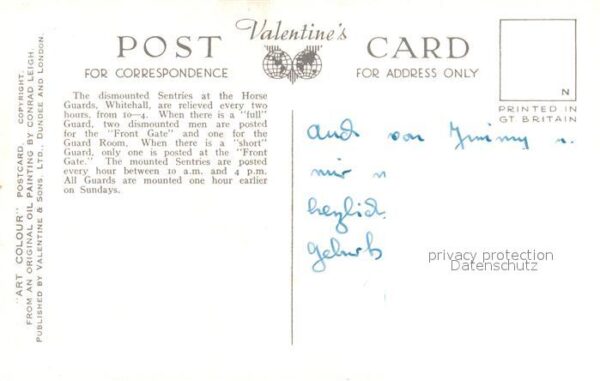 Valentine's
POST CARD
FOR CORRESPONDENCE
FOR ADDRESS ONLY
N
PRINTED IN
GT. BRITAIN
The dismounted Sentries at the Horse
Guards, Whitehall, are relieved every two
hours, from 10—4. When there is a "full"
Guard, two dismounted men are posted
for the "Front Gate" and one for the
Guard Room. When there is a "short"
Guard, only one is posted at the "Front
Gate." The mounted Sentries are posted
every hour between 10 a.m. and 4 p.m.
All Guards are mounted one hour earlier
on Sundays.
"ART COLOUR" POSTCARD. COPYRIGHT.
FROM AN ORIGINAL OIL PAINTING BY CONRAD LEIGH.
PUBLISHED BY VALENTINE & SONS, LTD., DUNDEE AND LONDON.
Auch von Jimmy
mir
herzlich
Geburts
privacy protection
Datenschutz